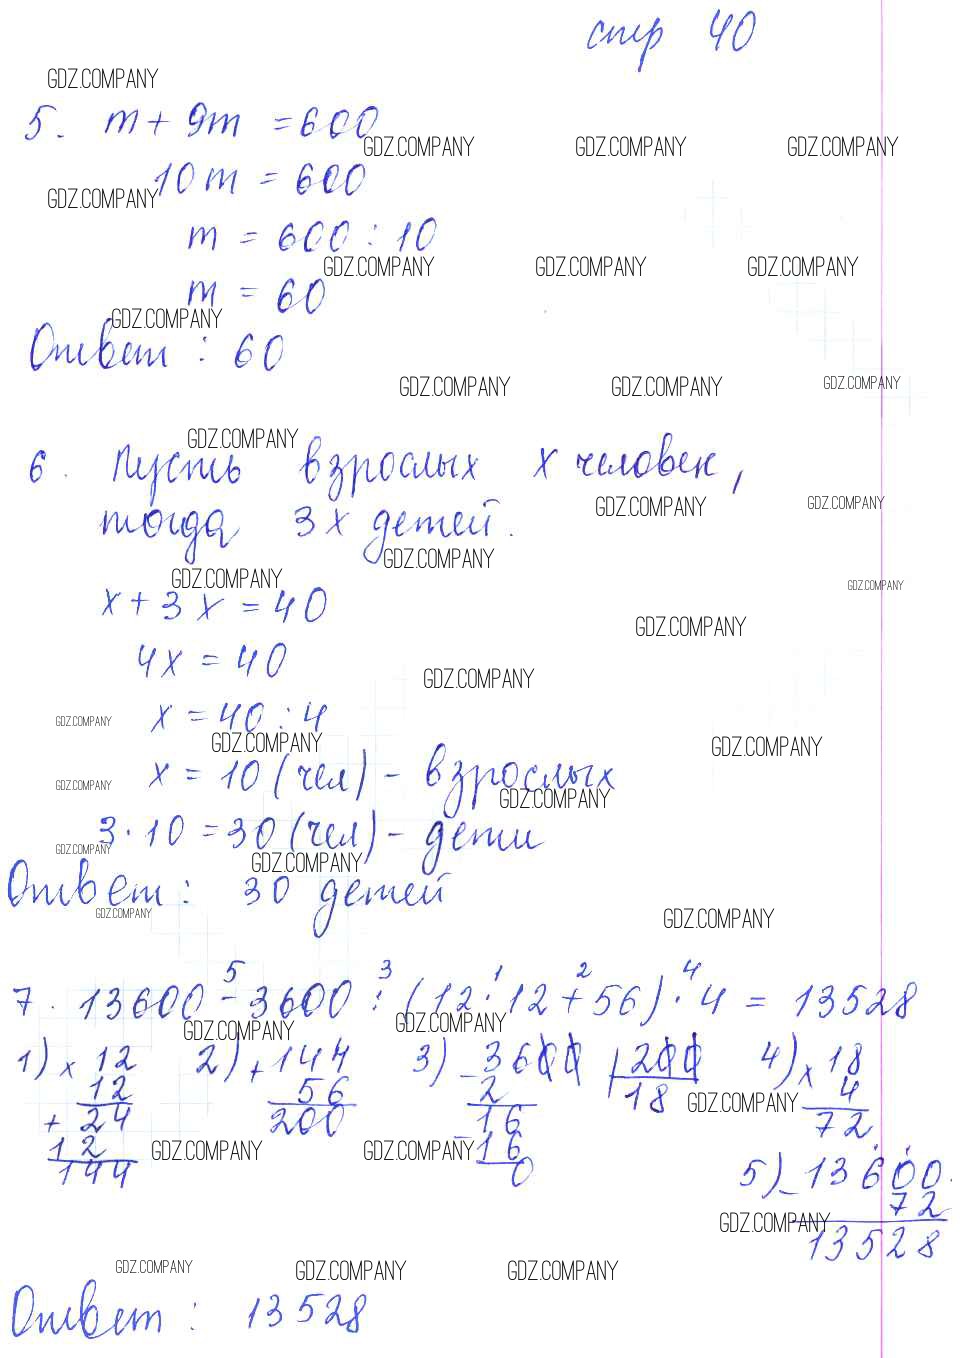 стр 40
GDZ.COMPANY
5. m + 9m = 600
GDZ.COMPANY GDZ.COMPANY GDZ.COMPANY
10m = 600
GDZ.COMPANY
m = 600 : 10
GDZ.COMPANY GDZ.COMPANY GDZ.COMPANY
m = 60
GDZ.COMPANY
Ответ : 60
GDZ.COMPANY GDZ.COMPANY GDZ.COMPANY
GDZ.COMPANY
6. Пусть взрослых х человек,
GDZ.COMPANY GDZ.COMPANY
тогда 3х детей.
GDZ.COMPANY
GDZ.COMPANY GDZ.COMPANY
х + 3х = 40
GDZ.COMPANY
4х = 40
GDZ.COMPANY
х = 40 : 4
GDZ.COMPANY
GDZ.COMPANY GDZ.COMPANY
х = 10 (чел) - взрослых
GDZ.COMPANY GDZ.COMPANY
3 · 10 = 30 (чел) - дети
GDZ.COMPANY GDZ.COMPANY
Ответ : 30 детей
GDZ.COMPANY GDZ.COMPANY
5 3 1 2 4
7. 13600 - 3600 : (12 · 12 + 56) · 4 = 13528
GDZ.COMPANY GDZ.COMPANY
1) х 12 2) + 144 3) - 3600 200 4) х 18
12 56 2 18 4
GDZ.COMPANY
+ 24 200 16 72
12 - 16
GDZ.COMPANY GDZ.COMPANY
144 0
5) - 13600
72
GDZ.COMPANY
13528
GDZ.COMPANY GDZ.COMPANY GDZ.COMPANY
Ответ : 13528